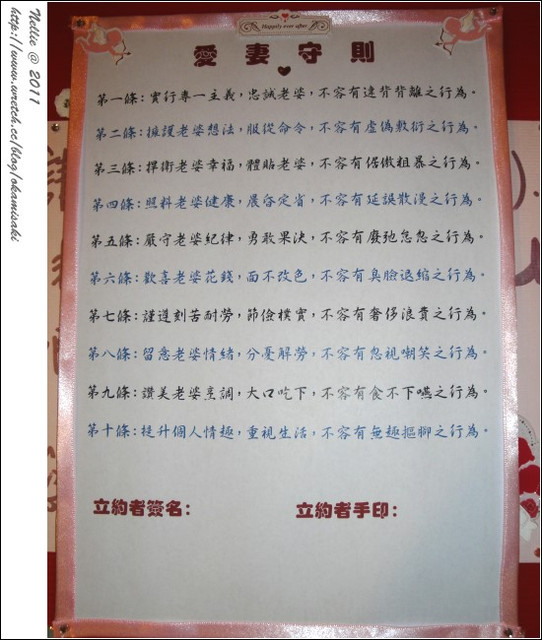 Happily ever after
愛妻守則
第一條：實行專一主義，忠誠老婆，不容有違背背離之行為。
第二條：擁護老婆想法，服從命令，不容有虛偽敷衍之行為。
第三條：捍衛老婆幸福，體貼老婆，不容有倨傲粗暴之行為。
第四條：照料老婆健康，晨昏定省，不容有延誤散漫之行為。
第五條：嚴守老婆紀律，勇敢果決，不容有廢弛怠忽之行為。
第六條：歡喜老婆花錢，面不改色，不容有臭臉退縮之行為。
第七條：謹遵刻苦耐勞，節儉樸實，不容有奢侈浪費之行為。
第八條：留意老婆情緒，分憂解勞，不容有忽視嘲笑之行為。
第九條：讚美老婆烹調，大口吃下，不容有食不下嚥之行為。
第十條：提升個人情趣，重視生活，不容有無趣摳腳之行為。
立約者簽名：
立約者手印：
Nellie @ 2011
http://www.wretch.cc/blog/okamisaki